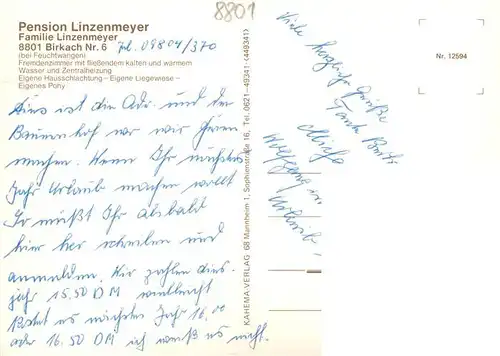 8801
Pension Linzenmeyer
Familie Linzenmeyer
8801 Birkach Nr. 6 Tel. 09804/370
(bei Feuchtwangen)
Fremdenzimmer mit fließendem kalten und warmem
Wasser und Zentralheizung
Eigene Hausschlachtung – Eigene Liegewiese –
Eigenes Pony
Dies ist die Adr. und der
Bauernhof wo wir
machen. Wenn Ihr nächstes
Jahr Urlaub machen wollt
Ir müßt Ihr alsbald
hier her schreiben und
anmelden. Wir zahlen dies.
jahr 15.50 DM vielleicht
kostet es nächstes Jahr 16,00
oder 16.50 DM ich weiß es nicht.
KAHEMA-VERLAG 68 Mannheim 1, Sophienstraße 16, Tel. 0621-49341 (449341)
Viele herzliche Grüße
Tante
Wolfgang in
Urlaub -
Nr. 12594